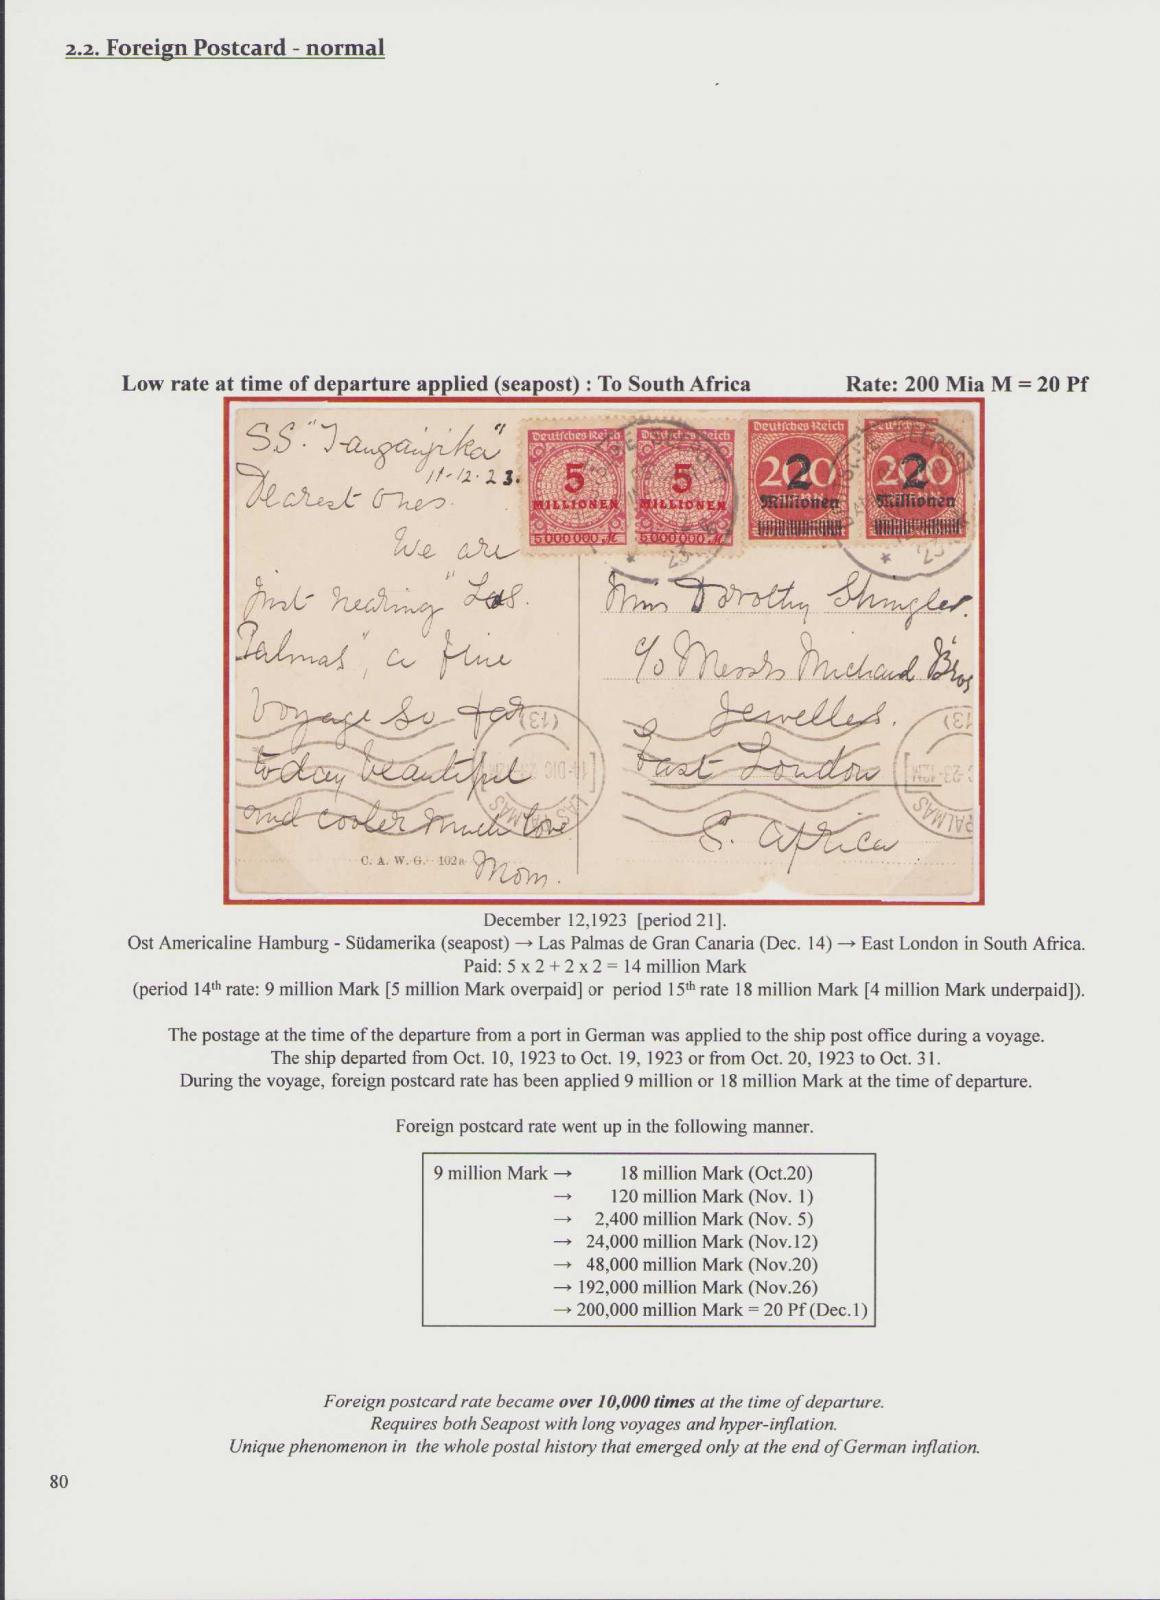 2.2. Foreign Postcard - normal
Low rate at time of departure applied (seapost) : To South Africa Rate: 200 Mia M = 20 Pf
S.S. "Tanganjika"
11-12-23.
Dearest Ones.
We are
just nearing "Las.
Palmas", a fine
voyage so far
today beautiful
and cooler much love
Mom.
C. A. W. G. 102a
Deutsches Reich
5
MILLIONEN
5000000 M
Deutsches Reich
5
MILLIONEN
5000000 M
Deutsches Reich
200
2
Millionen
Deutsches Reich
200
2
Millionen
SEEPOST
23
SEEPOST
23
Miss Dorothy Shingler.
c/o Messrs Michard Bros
Jewellers.
East London
S. Africa
(13)
14-DIC 23
LAS PALMAS
(13)
C-23-12M
PALMAS
December 12,1923 [period 21].
Ost Americaline Hamburg - Südamerika (seapost) → Las Palmas de Gran Canaria (Dec. 14) → East London in South Africa.
Paid: 5 x 2 + 2 x 2 = 14 million Mark
(period 14th rate: 9 million Mark [5 million Mark overpaid] or period 15th rate 18 million Mark [4 million Mark underpaid]).
The postage at the time of the departure from a port in German was applied to the ship post office during a voyage.
The ship departed from Oct. 10, 1923 to Oct. 19, 1923 or from Oct. 20, 1923 to Oct. 31.
During the voyage, foreign postcard rate has been applied 9 million or 18 million Mark at the time of departure.
Foreign postcard rate went up in the following manner.
9 million Mark → 18 million Mark (Oct.20)
→ 120 million Mark (Nov. 1)
→ 2,400 million Mark (Nov. 5)
→ 24,000 million Mark (Nov.12)
→ 48,000 million Mark (Nov.20)
→ 192,000 million Mark (Nov.26)
→ 200,000 million Mark = 20 Pf (Dec.1)
Foreign postcard rate became over 10,000 times at the time of departure.
Requires both Seapost with long voyages and hyper-inflation.
Unique phenomenon in the whole postal history that emerged only at the end of German inflation.
80